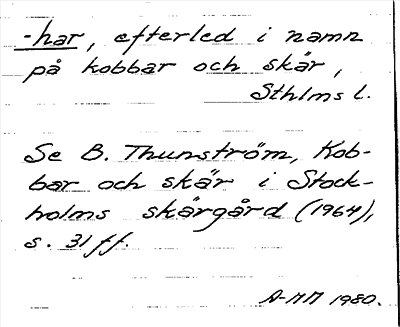 -har, efterled i namn
på kobbar och skär,
Sthlms l.
Se B. Thunström, Kob-
bar och skär i Stock-
holms skärgård (1964),
s. 31 ff.
A-MM 1980.